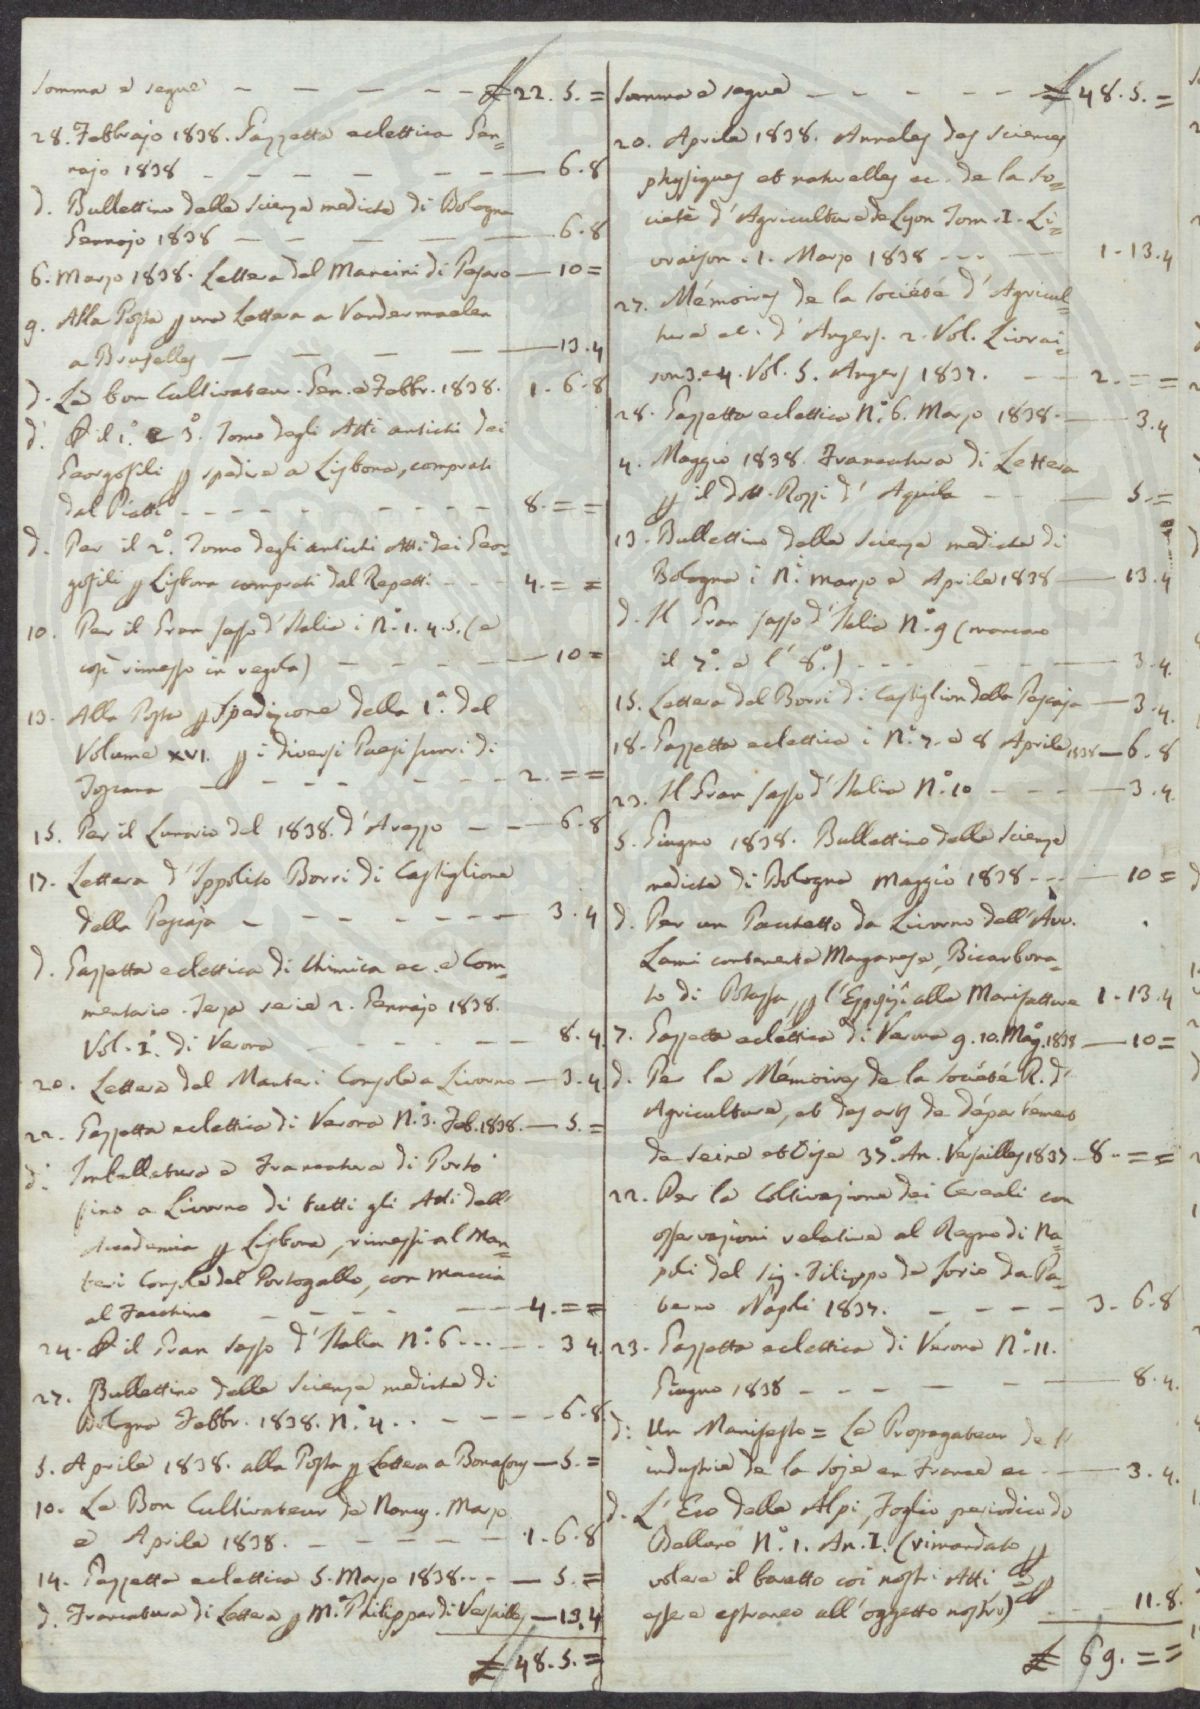 Somma e segue — — — — — £ 22. 5. =
28. Febbrajo 1838. Gazzetta eclettica Gen=
najo 1838 — — — — — — 6. 8
d. Bullettino delle Scienze mediche di Bologna
Gennajo 1838 — — — — — 6. 8
6. Marzo 1838. Lettera del Mancini di Pesaro — 10 =
9. Alla Posta p una Lettera a Vandermaelen
a Bruselles — — — — — 13. 4
d. Le bon Cultivateur. Gen. e Febbr. 1838. 1. 6. 8
d. P il 1.° e 3.° Tomo degli Atti antichi dei
Georgofili p spedire a Lisbona, comprati
dal Piatti - - - - - - - - - 8. = =
d. Per il 2.° Tomo degli antichi Atti dei Geor-
gofili p Lisbona comprati dal Repetti - - - 4. = =
10. Per il Gran Sasso d'Italia i N.i 1. 4. 5. (e
così rimesso in regola) — — — — — 10 =
13. Alla Posta p Spedizione della 1.a del
Volume XVI. p i diversi Paesi fuori di
Toscana — — - - - - - - 2. = =
15. Per il Lunario del 1838. d'Arezzo — — 6. 8
17. Lettera d'Ippolito Borri di Castiglione
della Pescaja — — — — — — — 3. 4
d. Gazzetta eclettica di Chimica ec. e Com-
mentario. Terza serie 2. Gennajo 1838.
Vol. I.° di Verona — — — — — — 8. 4.
20. Lettera del Manteri Console a Livorno — 3. 4
22. Gazzetta eclettica di Verona N.° 3. Feb. 1838. — 5. =
d. Imballatura e Francatura di Porto
fino a Livorno di tutti gli Atti dell'
Accademia p Lisbona, rimessi al Man=
teri Console del Portogallo, con mancia
al Facchino — - - - — — 4. = =
24. P il Gran Sasso d'Italia N.° 6 - - - — - - 3 4.
27. Bullettino delle Scienze mediche di
Bologna Febbr. 1838. N.° 4. . — - - - - 6. 8.
5. Aprile 1838. alla Posta p Lettera a Bonafous — 5. =
10. Le Bon Cultivateur de Nancy. Marzo
e Aprile 1838. — — — — — — 1. 6. 8
14. Gazzetta eclettica 5. Marzo 1838. - - — 5. =
d. Francatura di Lettera p M.r Philippar di Versailles — 13. 4
£ 48. 5. =
Somma e segue — — — — — £ 48. 5. =
20. Aprile 1838. Annales des Sciences
physiques et naturelles ec. de la So=
cieté d'Agriculture de Lyon Tom. I. Li=
vraison. 1. Marzo 1838 - - - — 1. 13. 4
27. Mémoires de la Société d'Agricul=
ture ec. d'Angers. 2. Vol. Livrai=
son 3. e 4. Vol. 5. Angers 1837. — — 2. = =
28. Gazzetta eclettica N.° 6. Marzo 1838 - — 3. 4
4. Maggio 1838. Francatura di Lettera
p il dott. Rozzi d'Aquila — — — 5. =
13. Bullettino delle Scienze mediche di
Bologna i N.i marzo e Aprile 1838 — 13. 4
d. Il Gran Sasso d'Italia N.° 9 (mancano
il 7.° e l'8.°) - - - - — — — 3. 4.
15. Lettera del Borri di Castiglion della Pescaja — 3. 4.
18. Gazzetta eclettica i N.i 7. e 8 Aprile 1838 — 6. 8
23. Il Gran Sasso d'Italia N.° 10 - - - - — 3. 4.
5. Giugno 1838. Bullettino delle Scienze
mediche di Bologna Maggio 1838 - - - — 10 =
d. Per un Pacchetto da Livorno dell'Avv.
Lami contenente Manganese, Bicarbona=
to di Potassa, p l'Espos.ne alla Manifatture 1. 13. 4
7. Gazzetta eclettica di Verona 9. 10. Mag.° 1838 — 10 =
d. Per le Mémoires de la Société R. d'
Agriculture, et des arts de département
de Seine et Oise 37.° An. Versailles 1837. 8. = =
22. Per la Coltivazione dei Cereali con
osservazioni relative al Regno di Na=
poli del Sig. Filippo de Jorio da Pa=
terno Napoli 1837. — — — — 3. 6. 8
23. Gazzetta eclettica di Verona N.° 11.
Giugno 1838 — — — — — — 8. 4.
d. Un Manifesto = Le Propagateur de l'
industrie de la Soje en France ec — — 3. 4.
d. L'Eco delle Alpi, Foglio periodico di
Belluno N.° 1. An. I. (rimandato p
volere il baratto coi nostri Atti e p
essere estraneo all'oggetto nostro) — 11. 8.
£ 69. = =